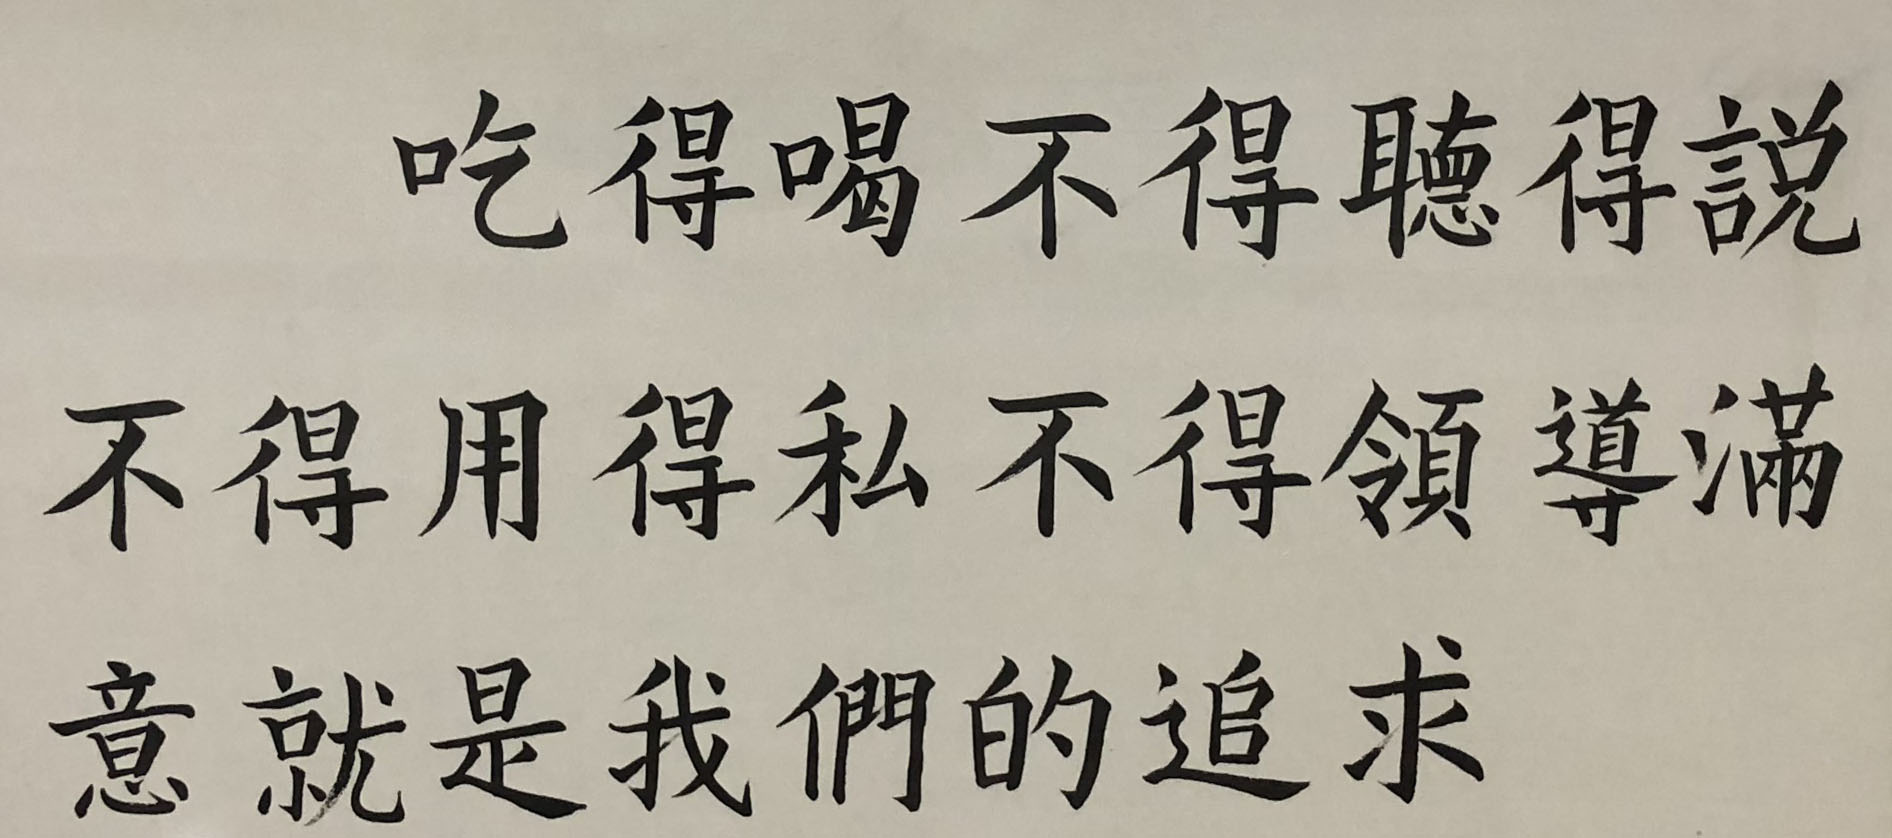 吃得喝不得聽得説
不得用得私不得領導滿
意就是我們的追求